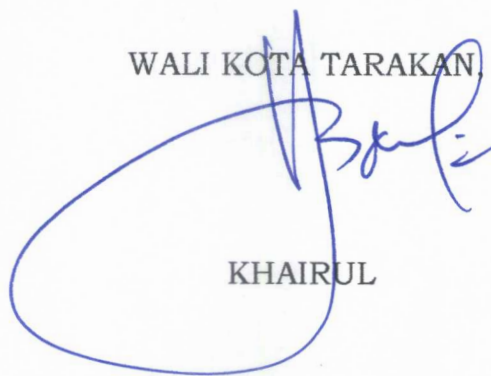 WALI KOTA TARAKAN,
KHAIRUL